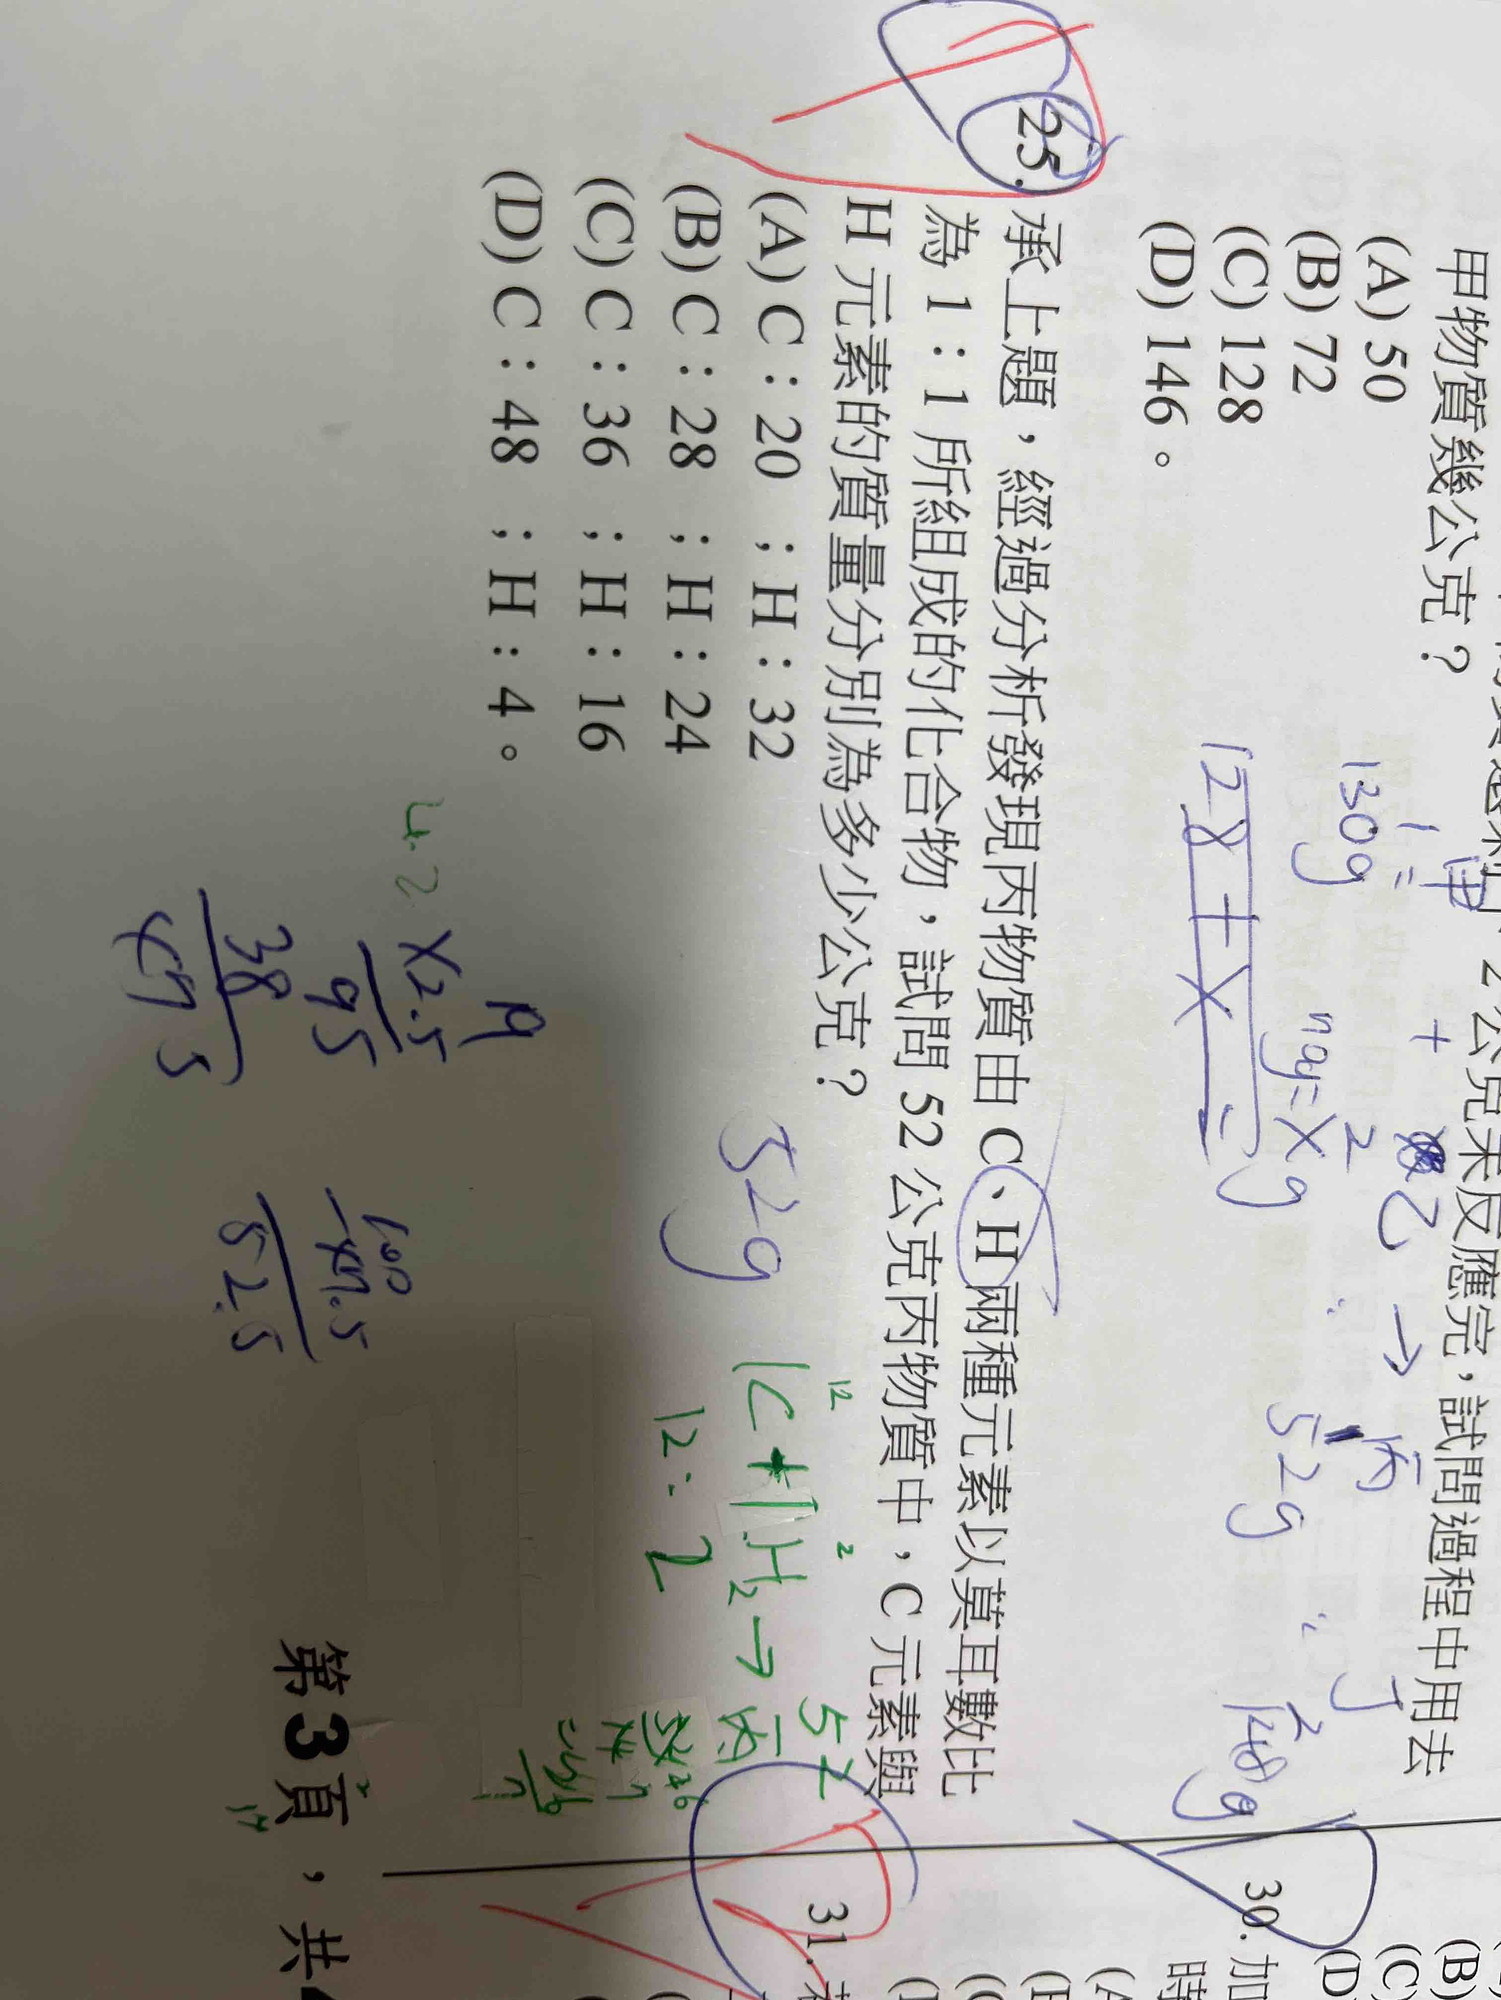 2公克未反應完，試問過程中用去
甲物質幾公克？
(A) 50
(B) 72
(C) 128
(D) 146。
1甲 + 2乙 → 1丙 2丁
130g
xg 52g 148g
128+x=
25. 承上題，經過分析發現丙物質由C、H兩種元素以莫耳數比
為1：1所組成的化合物，試問52公克丙物質中，C元素與
H元素的質量分別為多少公克？
(A) C：20 ；H：32
(B) C：28 ；H：24
(C) C：36 ；H：16
(D) C：48 ；H：4。
52g
12 2 52
1C+1H₂→丙
12:2
4.2
19
×2.5
95
38
47.5
100
-47.5
52.5
第3頁，共
30. 加
時
(A)
31.
(B)
(C)